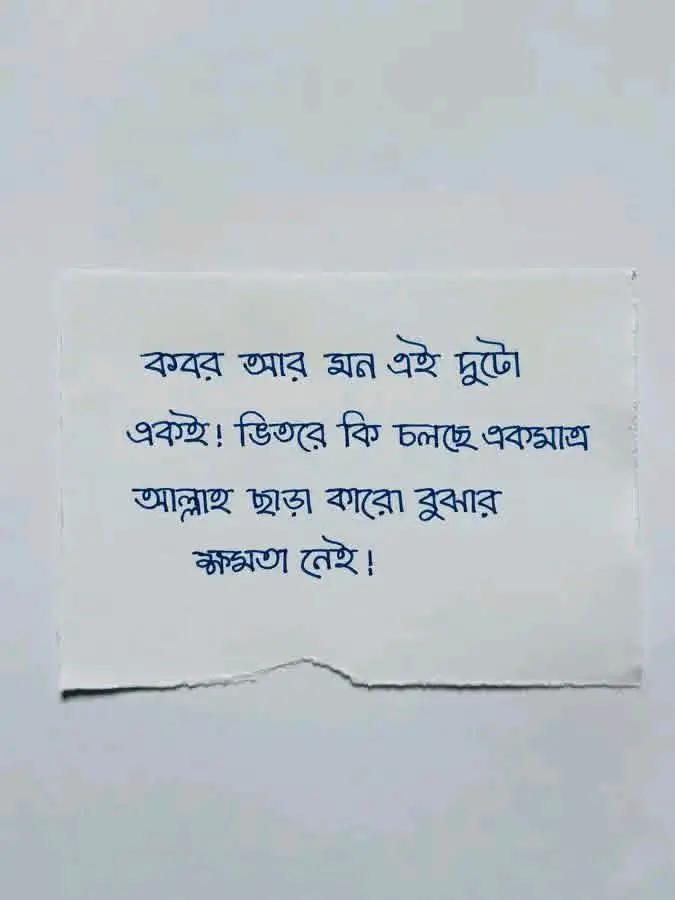 কবর আর মন এই দুটো
একই! ভিতরে কি চলছে একমাত্র
আল্লাহ ছাড়া কারো বুঝার
ক্ষমতা নেই!